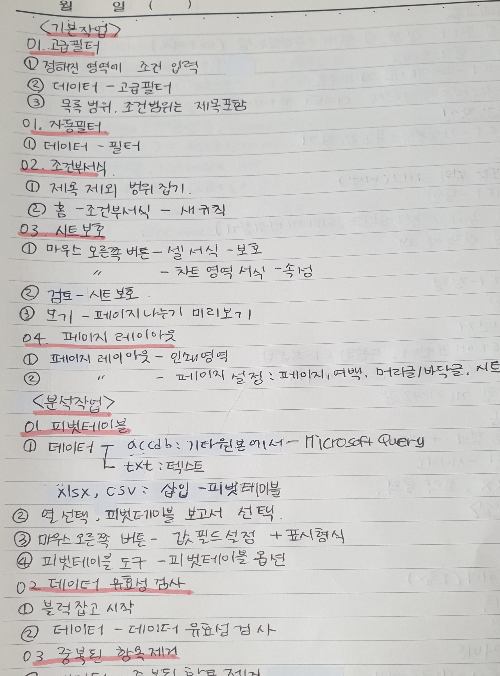 월 일 ( )
<기본작업>
01. 고급필터
① 정해진 영역에 조건 입력
② 데이터 - 고급필터
③ 목록 범위, 조건범위는 제목포함
01. 자동필터
① 데이터 - 필터
02. 조건부서식
① 제목 제외 범위 잡기.
② 홈 - 조건부서식 - 새규칙
03. 시트보호
① 마우스 오른쪽 버튼 - 셀 서식 - 보호
〃 - 차트 영역 서식 - 속성
② 검토 - 시트 보호.
③ 보기 - 페이지 나누기 미리보기
04. 페이지 레이아웃
① 페이지 레이아웃 - 인쇄영역
② 〃 - 페이지 설정 : 페이지, 여백, 머리글/바닥글, 시트
<분석작업>
01 피벗테이블
① 데이터 accdb : 기타원본에서 - Microsoft Query
txt : 텍스트
xlsx, csv : 삽입 - 피벗테이블
② 열 선택, 피벗테이블 보고서 선택.
③ 마우스 오른쪽 버튼 - 값 필드 설정 + 표시형식
④ 피벗테이블 도구 - 피벗테이블 옵션
02 데이터 유효성 검사
① 블럭잡고 시작
② 데이터 - 데이터 유효성 검사
03 중복된 항목제거